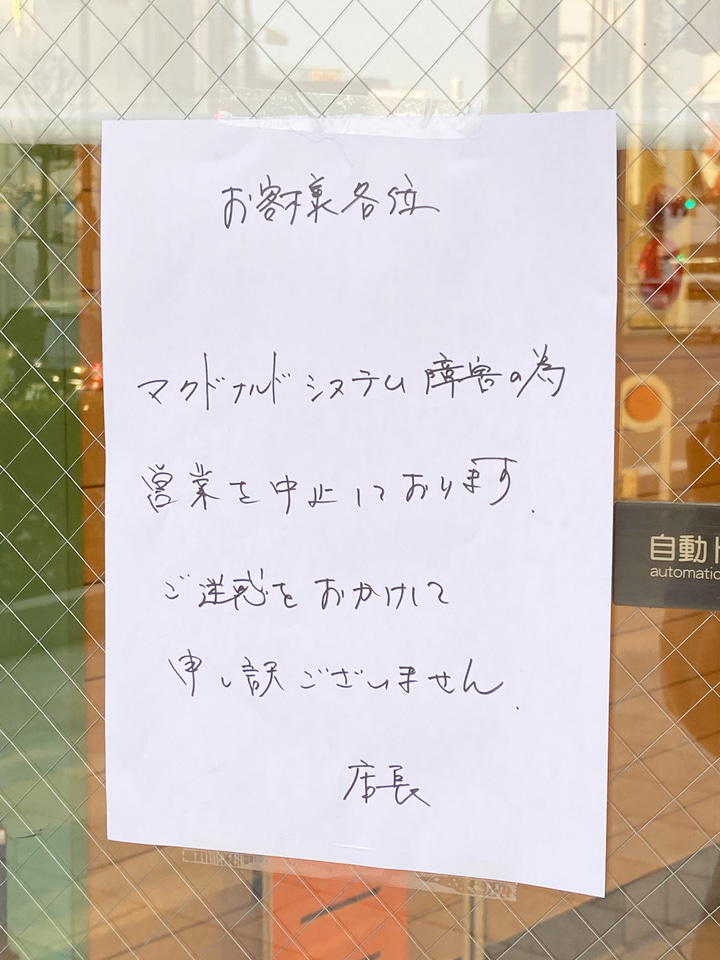 お客様各位
マクドナルドシステム障害の為
営業を中止しております.
ご迷惑をおかけして
申し訳ございません.
店長
自動ド
automatic